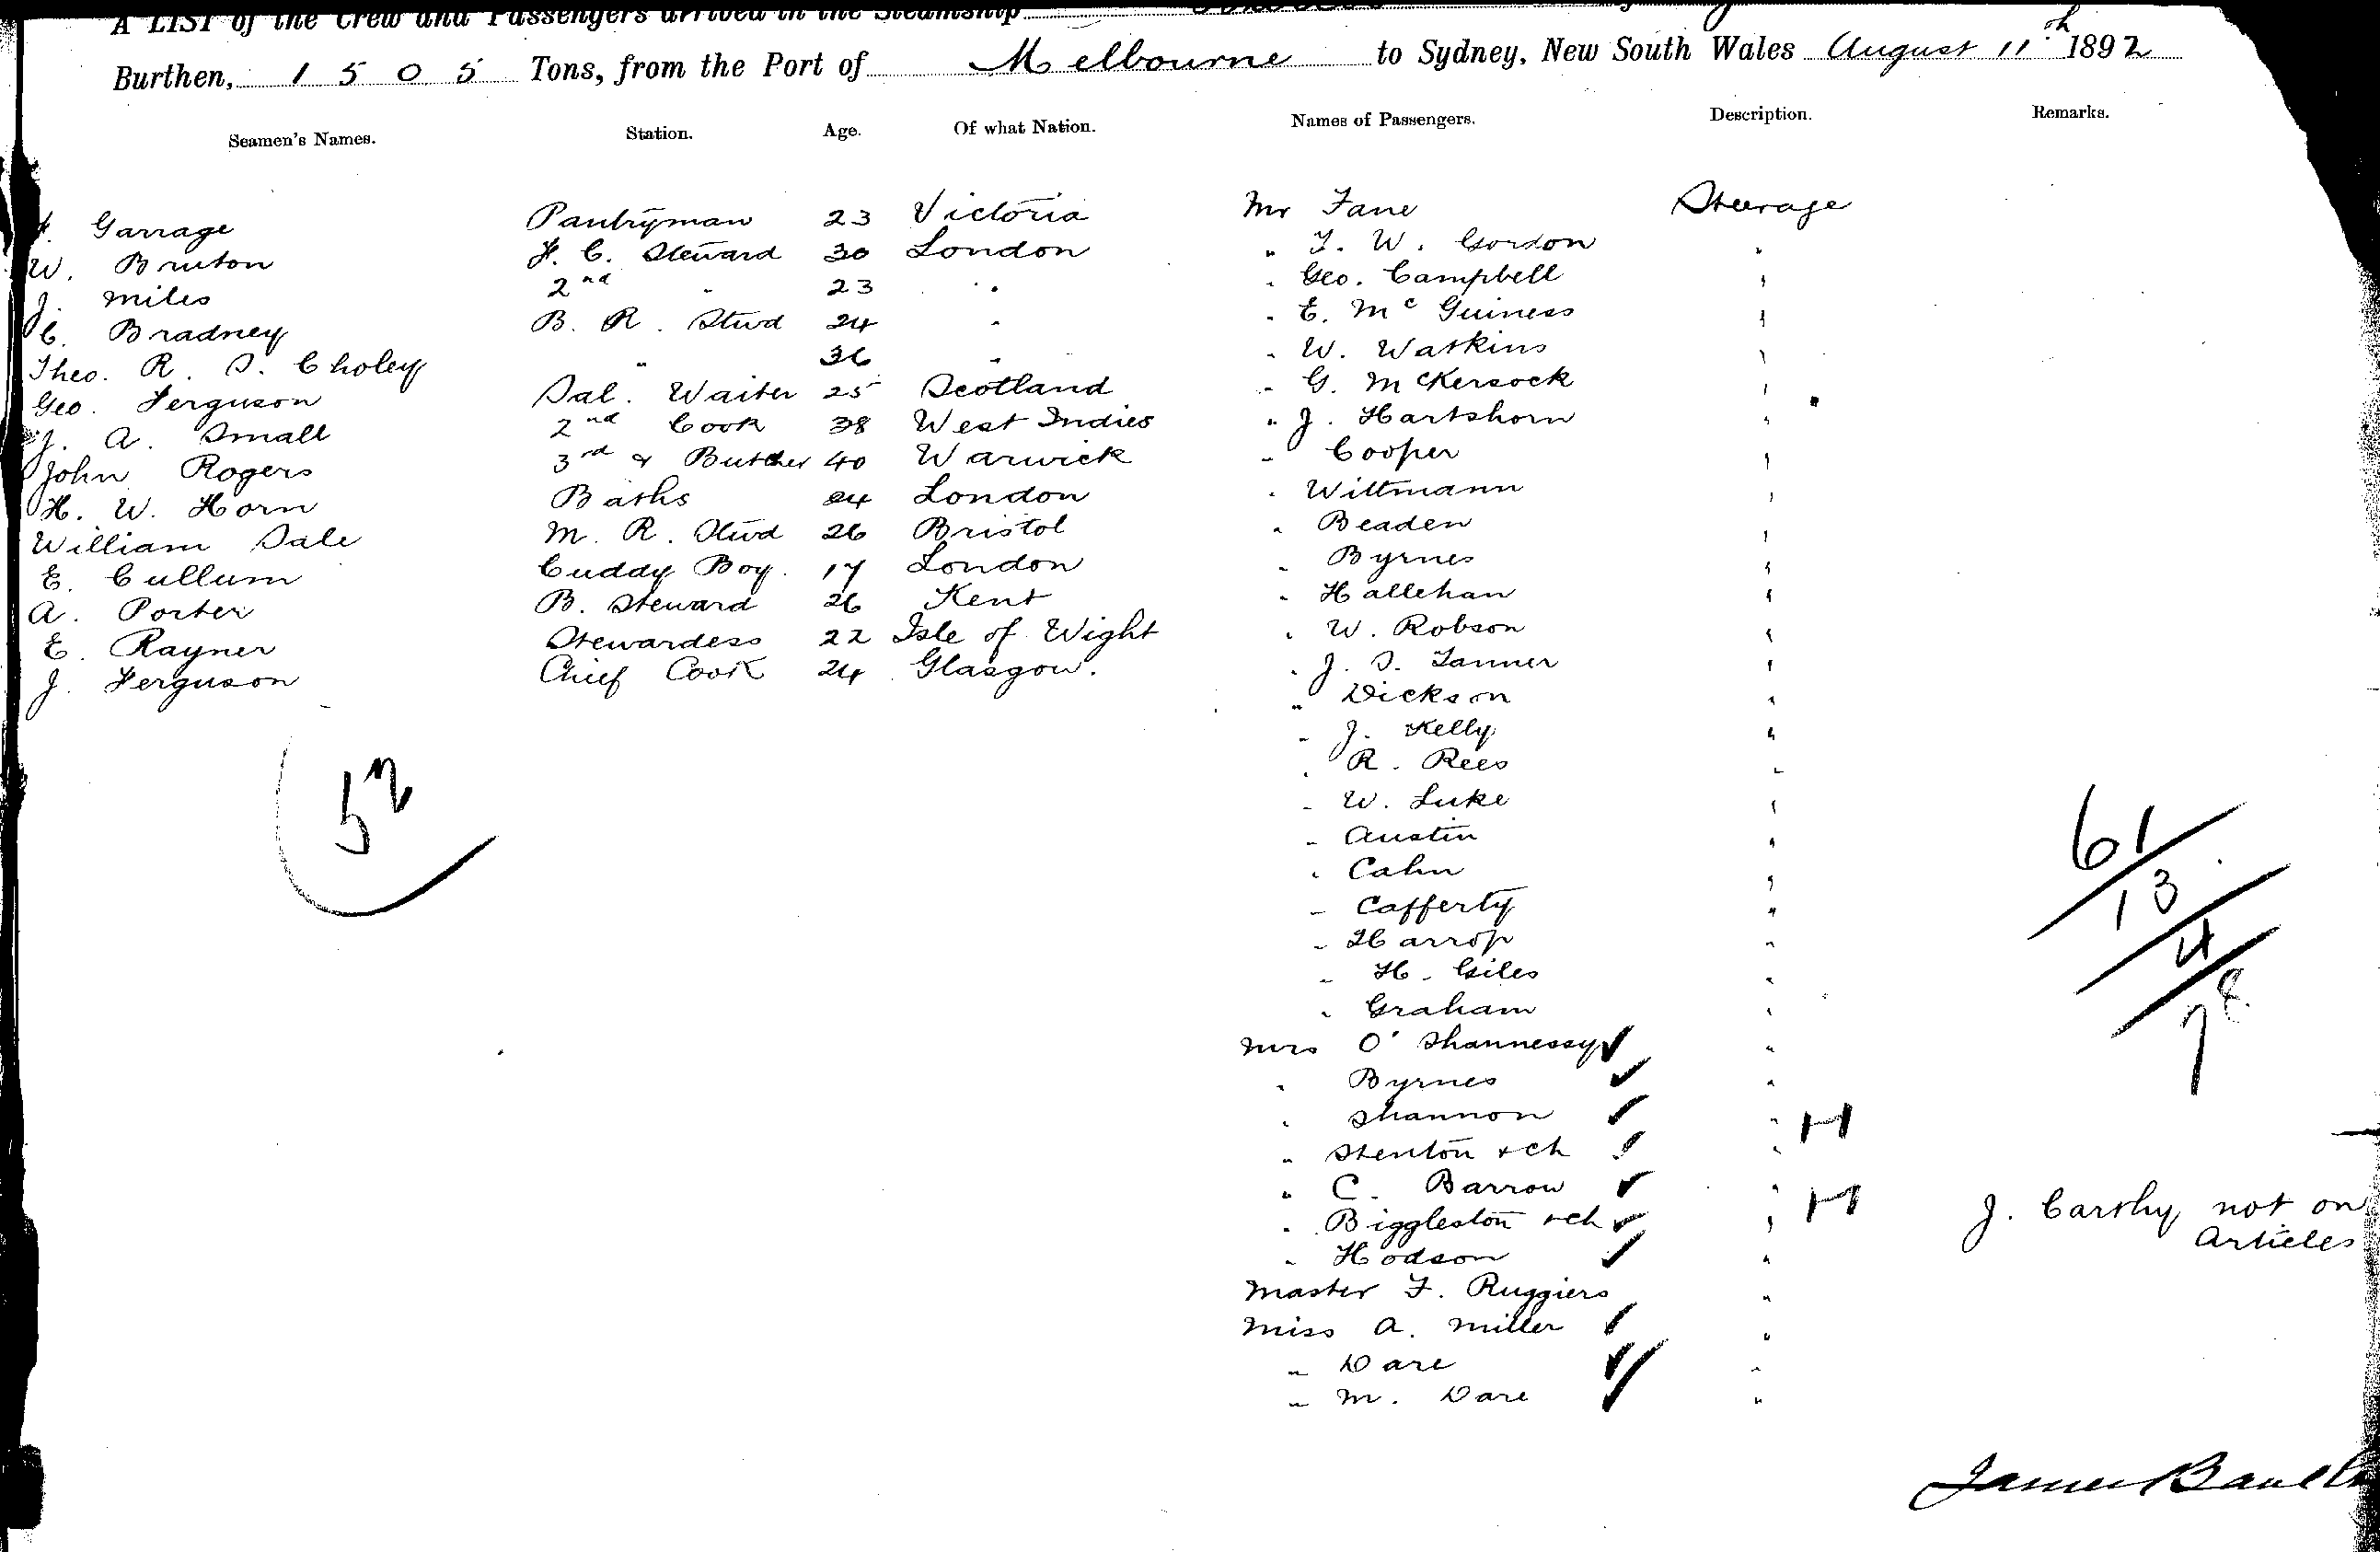 A LIST of the Crew and Passengers arrived in the Steamship
Burthen, 1505 Tons, from the Port of Melbourne to Sydney, New South Wales August 11th 1892
Seamen's Names. Station. Age. Of what Nation. Names of Passengers. Description. Remarks.
Garrage Pantryman 23 Victoria Mr Fane Steerage
W. Bruton F. C. Steward 30 London " T. W. Gordon "
J. Miles 2nd " 23 " " Geo. Campbell "
C. Bradney B. R. Stwd 24 " " E. McGuiness "
Theo. R. S. Choley " 36 " " W. Watkins "
Geo. Ferguson Sal. Waiter 25 Scotland " G. McKersock "
J. A. Small 2nd Cook 38 West Indies " J. Hartshorn "
John Rogers 3rd & Butcher 40 Warwick " Cooper "
H. W. Horn Baths 24 London " Wittmann "
William Sale M. R. Stwd 26 Bristol " Beaden "
E. Cullum Cuddy Boy. 17 London " Byrnes "
A. Porter B. Steward 26 Kent " Hallehan "
E. Rayner Stewardess 22 Isle of Wight " W. Robson "
J. Ferguson Chief Cook 24 Glasgow. " J. S. Tanner "
" Dickson "
" J. Kelly "
" R. Rees "
52 " W. Luke "
" Austin "
61 " Cahn "
13 " Cafferty "
4 " Harrop "
78 " H. Giles "
" Graham "
Mrs O'Shannessy "
" Byrnes "
" Shannon "
" Stenton & ch " H
" C. Barrow "
" Biggleston & ch " H J. Carthy not on
Articles
" Hodson "
Master F. Ruggiers "
Miss A. Miller "
" Dare "
" M. Dare "
James